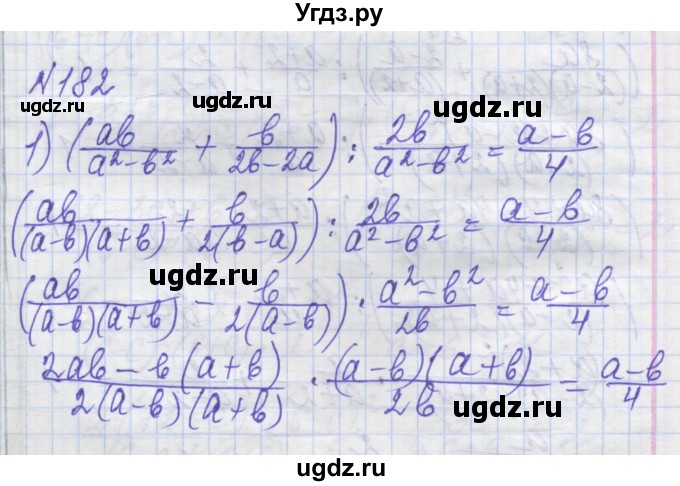 Угдз.ру
№182
ugdz.ru ugdz.ru ugdz.ru
1) (ab/(a²-b²) + b/(2b-2a)) : 2b/(a²-b²) = (a-b)/4
(ab/((a-b)(a+b)) + b/(2(b-a))) : 2b/(a²-b²) = (a-b)/4
ugdz.ru ugdz.ru
(ab/((a-b)(a+b)) - b/(2(a-b))) · (a²-b²)/2b = (a-b)/4
(2ab-b(a+b))/(2(a-b)(a+b)) · ((a-b)(a+b))/2b = (a-b)/4
ugdz.ru ugdz.ru
ugdz.ru